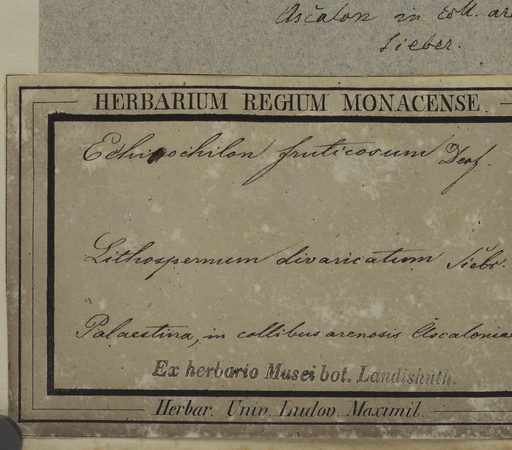 Ascalon in coll. are
Sieber.
HERBARIUM REGIUM MONACENSE
Echinochilon fruticosum Desf.
Lithospermum divaricatum Siebr.
Palaestina, in collibus arenosis Ascaloniae
Ex herbario Musei bot. Landishuth.
Herbar. Univ. Ludov. Maximil.